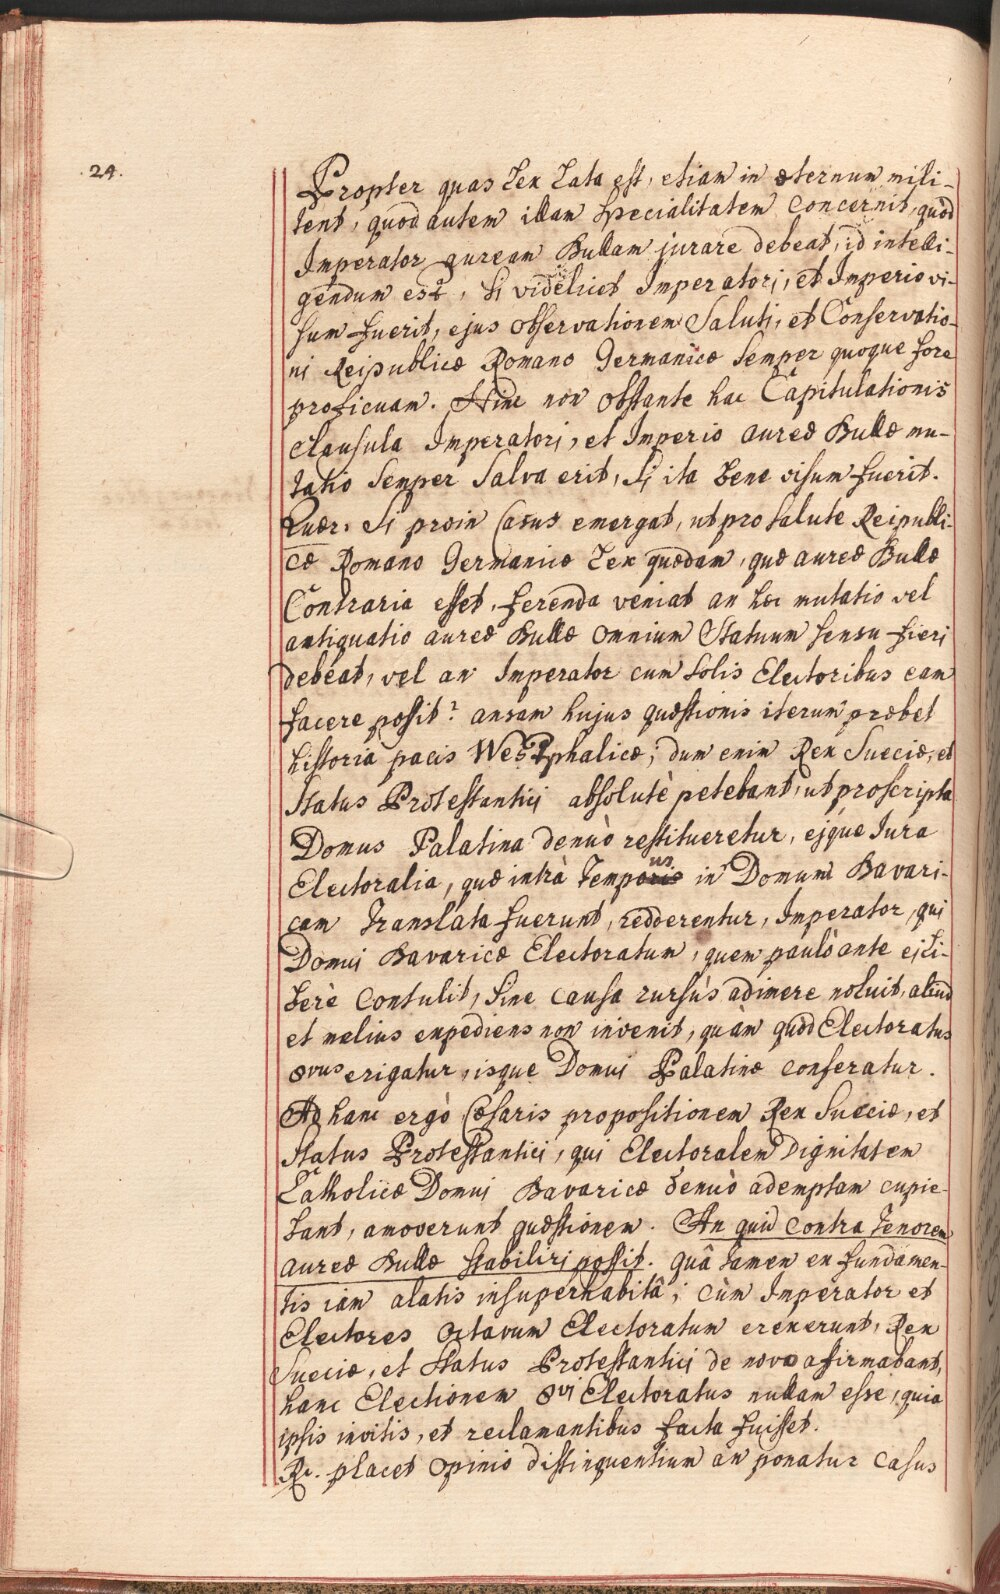 24.
Propter quas Lex Lata est, etiam in æternum mili-
tent, quod autem illam specialitatem concernit, quòd
Imperator auream Bullam jurare debeat, id intelli-
gendum est, si videlicet Imperatori, et Imperio vi-
sum fuerit, ejus observationem Saluti, et Conservatio-
ni Reipublicæ Romano Germanicæ Semper quoque fore
proficuam. Hinc non obstante hac Capitulationis
clausula Imperatori, et Imperio aureæ Bullæ mu-
tatio Semper Salva erit, si ita bene visum fuerit.
Quær. Si proin Casus emergat, ut pro salute Reipubli-
cæ Romano Germanicæ Lex quædam, quæ aureæ Bullæ
Contraria esset, ferenda veniat an hæc mutatio vel
antiquatio aureæ Bullæ omnium Statuum sensu fieri
debeat, vel an Imperator cum solis Electoribus eam
facere possit? ansam hujus quæstionis iterum præbet
historia pacis Westphalicæ; dum enim Rex Sueciæ, et
Status Protestantici absolutè petebant, ut proscripta
Domus Palatina denuò restitueretur, ejque Iura
Electoralia, quæ intrà Tempus in Domum Bavari-
cam Translata fuerunt, redderentur, Imperator, qui
Domui Bavaricæ Electoratum, quem paulò ante ej li-
berè contulit, sine causa rursùs adimere noluit, aliud
et melius expediens non invenit, quàm quòd Electoratus
8vus erigatur, isque Domui Palatinæ conferatur.
Ad hanc ergò Cæsaris propositionem Rex Sueciæ, et
Status Protestantici, qui Electoralem Dignitatem
Catholicæ Domui Bavaricæ denuò ademptam cupie-
bant, amoverunt quæstionem. An quid contra Tenorem
aureæ Bullæ stabiliri possit. quâ tamen ex fundamen-
tis iam alatis insuperhabitâ; cùm Imperator et
Electores Octavum Electoratum erexerunt, Rex
Sueciæ, et Status Protestantici de novo afirmabant,
hanc Electionem 8vi Electoratus nullam esse, quia
ipsis invitis, et reclamantibus facta fuisset.
Rx. placet opinio distinquentium an ponatur casus